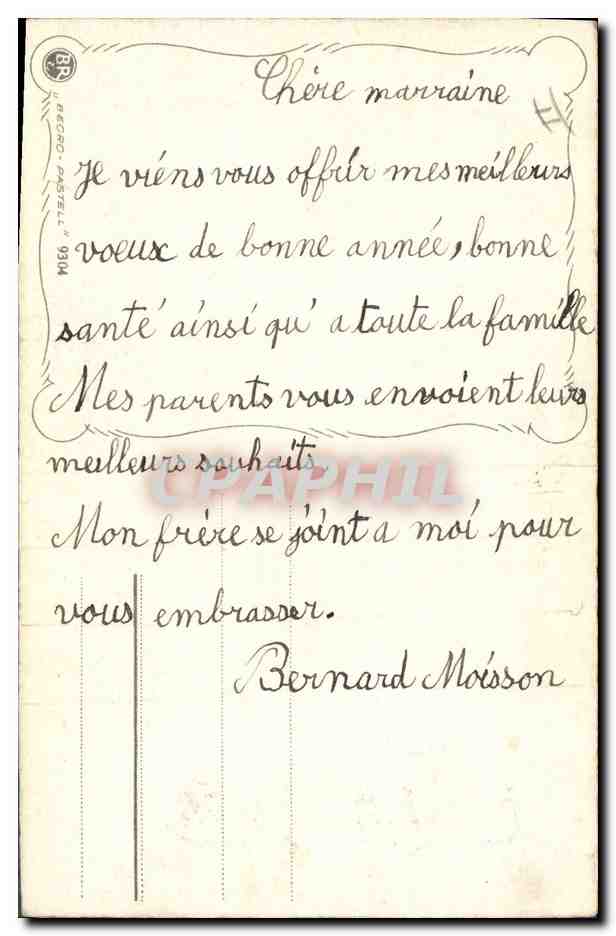 Chère marraine
II
Je viéns vous offrir mes meilleurs
voeux de bonne année, bonne
santé ainsi qu' a toute la famille
Mes parents vous envoient leurs
meilleurs souhaits.
Mon frère se joint a moi pour
vous embrasser.
Bernard Moisson
BR
" BECRO - PASTELL " 9304
CPAPHIL